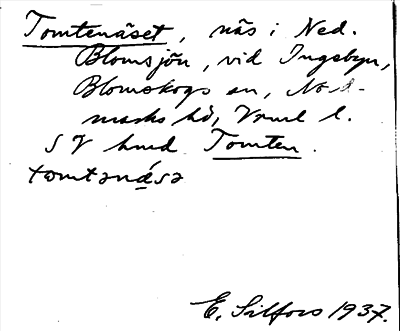 Tomtenäset, näs i Ned.
Blomsjön, vid Ingebyn,
Blomskogs sn, Nord-
marks hd, Vrml l.
SV hmd Tomten.
tomtənǻsə
E. Silfors 1937.